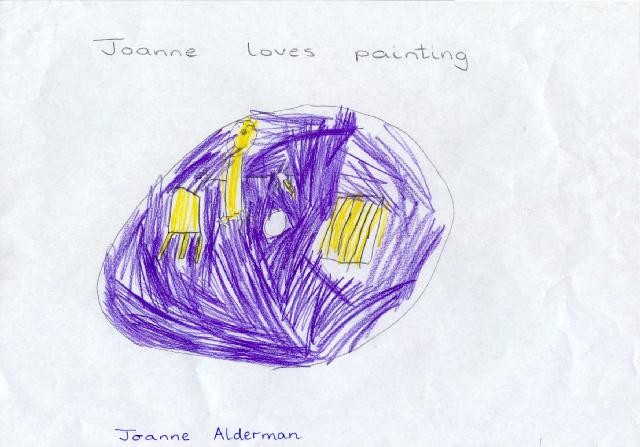 Joanne loves painting
Joanne Alderman